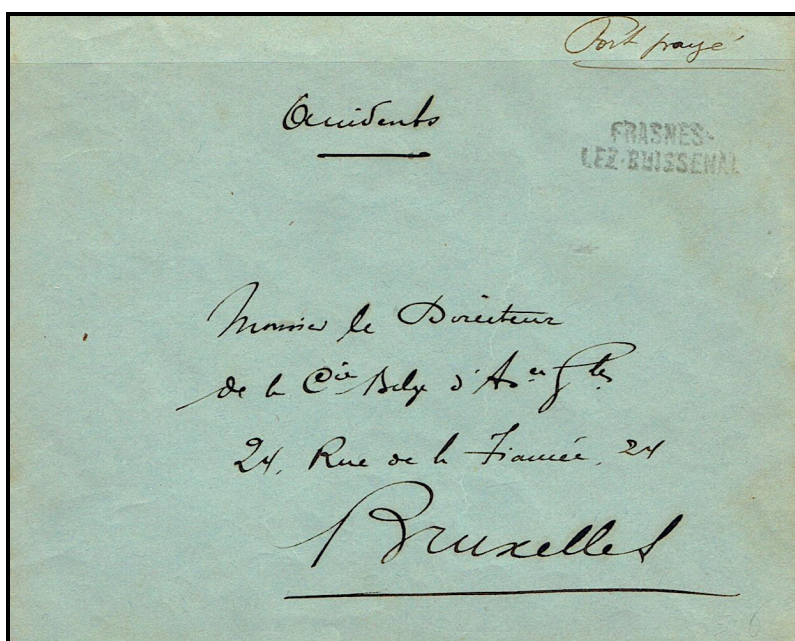 Port payé
Accidents
FRASNES-
LEZ-BUISSENAL
Monsieur le Directeur
de la Cie Belge d'Asces Gles
24, Rue de la Fiancée, 24
Bruxelles